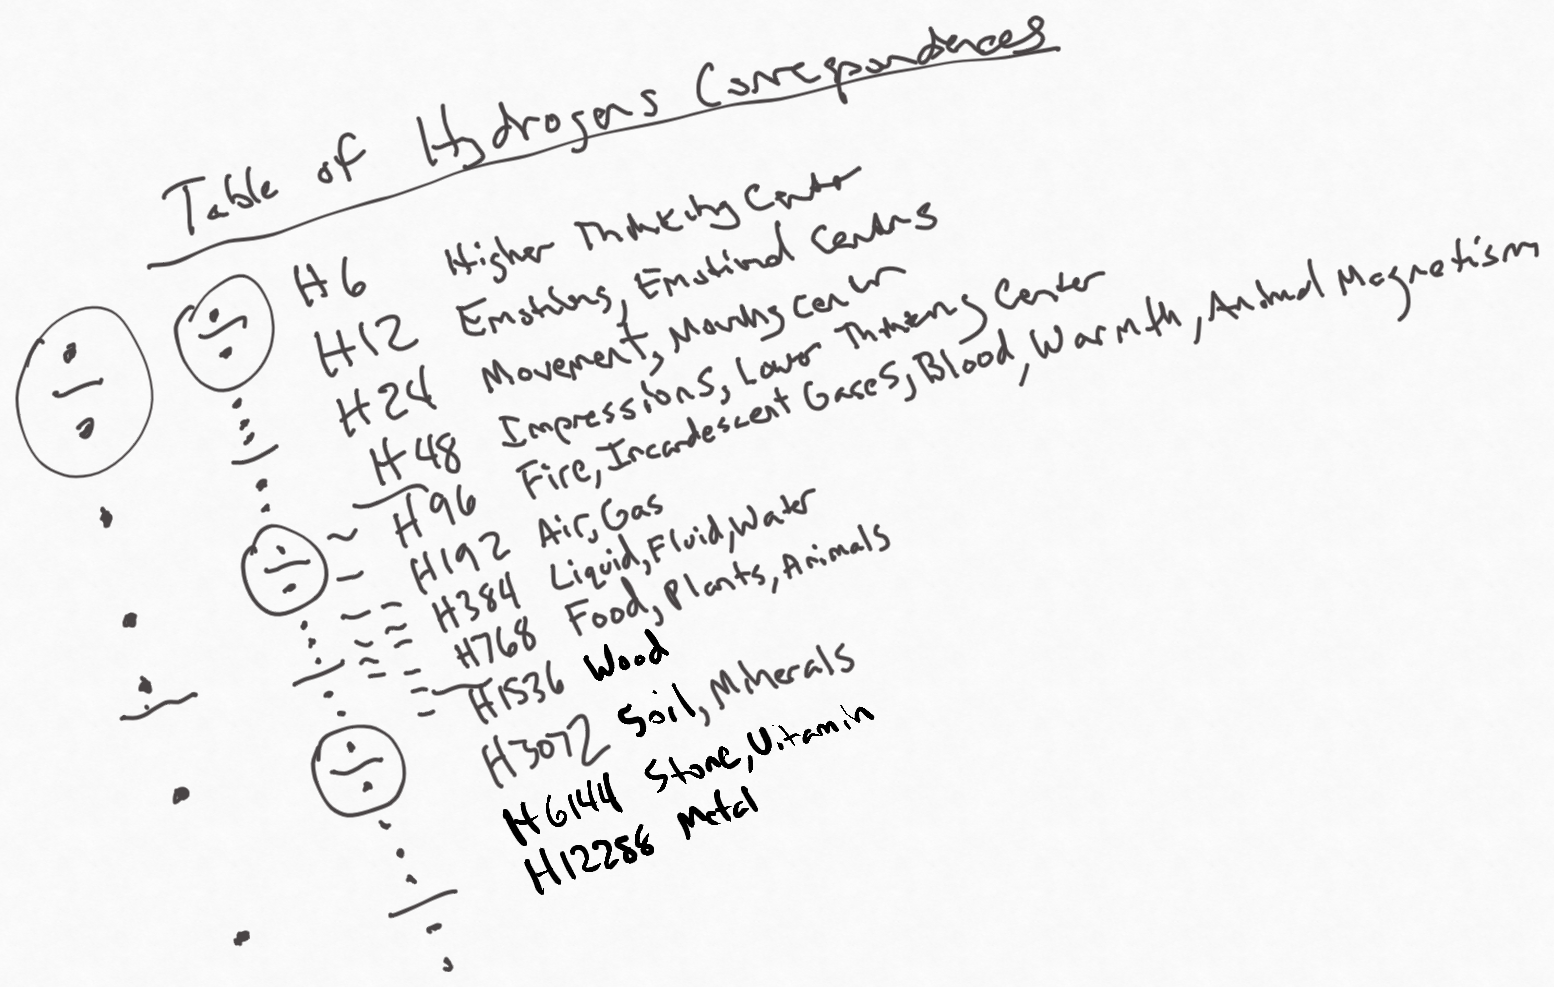 Table of Hydrogens Correspondences
H6 Higher Thinking Center
H12 Emotions, Emotional Centers
H24 Movement, Moving Center
H48 Impressions, Lower Thinking Center
H96 Fire, Incandescent Gases, Blood, Warmth, Animal Magnetism
H192 Air, Gas
H384 Liquid, Fluid, Water
H768 Food, Plants, Animals
H1536 Wood
H3072 Soil, Minerals
H6144 Stone, Vitamin
H12288 Metal